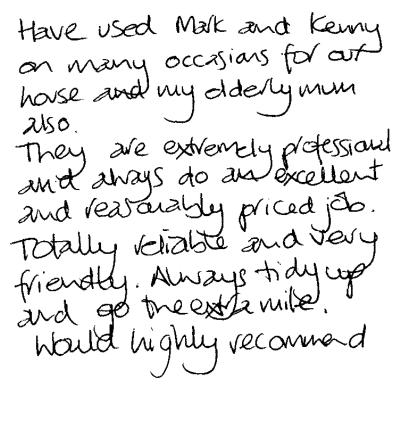 Have used Mark and Kenny
on many occasions for our
house and my elderly mum
also.
They are extremely professional
and always do an excellent
and reasonably priced job.
Totally reliable and very
friendly. Always tidy up
and go the extra mile.
Would highly recommend